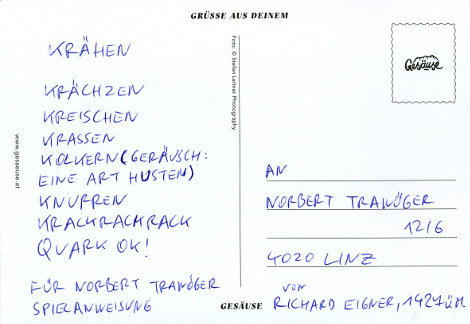 GRÜSSE AUS DEINEM
KRÄHEN
KRÄCHZEN
KREISCHEN
KRASSEN
KOLKERN (GERÄUSCH:
EINE ART HUSTEN)
KNURREN
KRACKRACKRACK
QUARK OK!
FÜR NORBERT TRAWÖGER
SPIELANWEISUNG
www.gesaeuse.at
Foto: © Stefan Leitner Photography
Gesäuse
AN
NORBERT TRAWÖGER
12/6
4020 LINZ
VON
RICHARD EIGNER, 1427üM
GESÄUSE